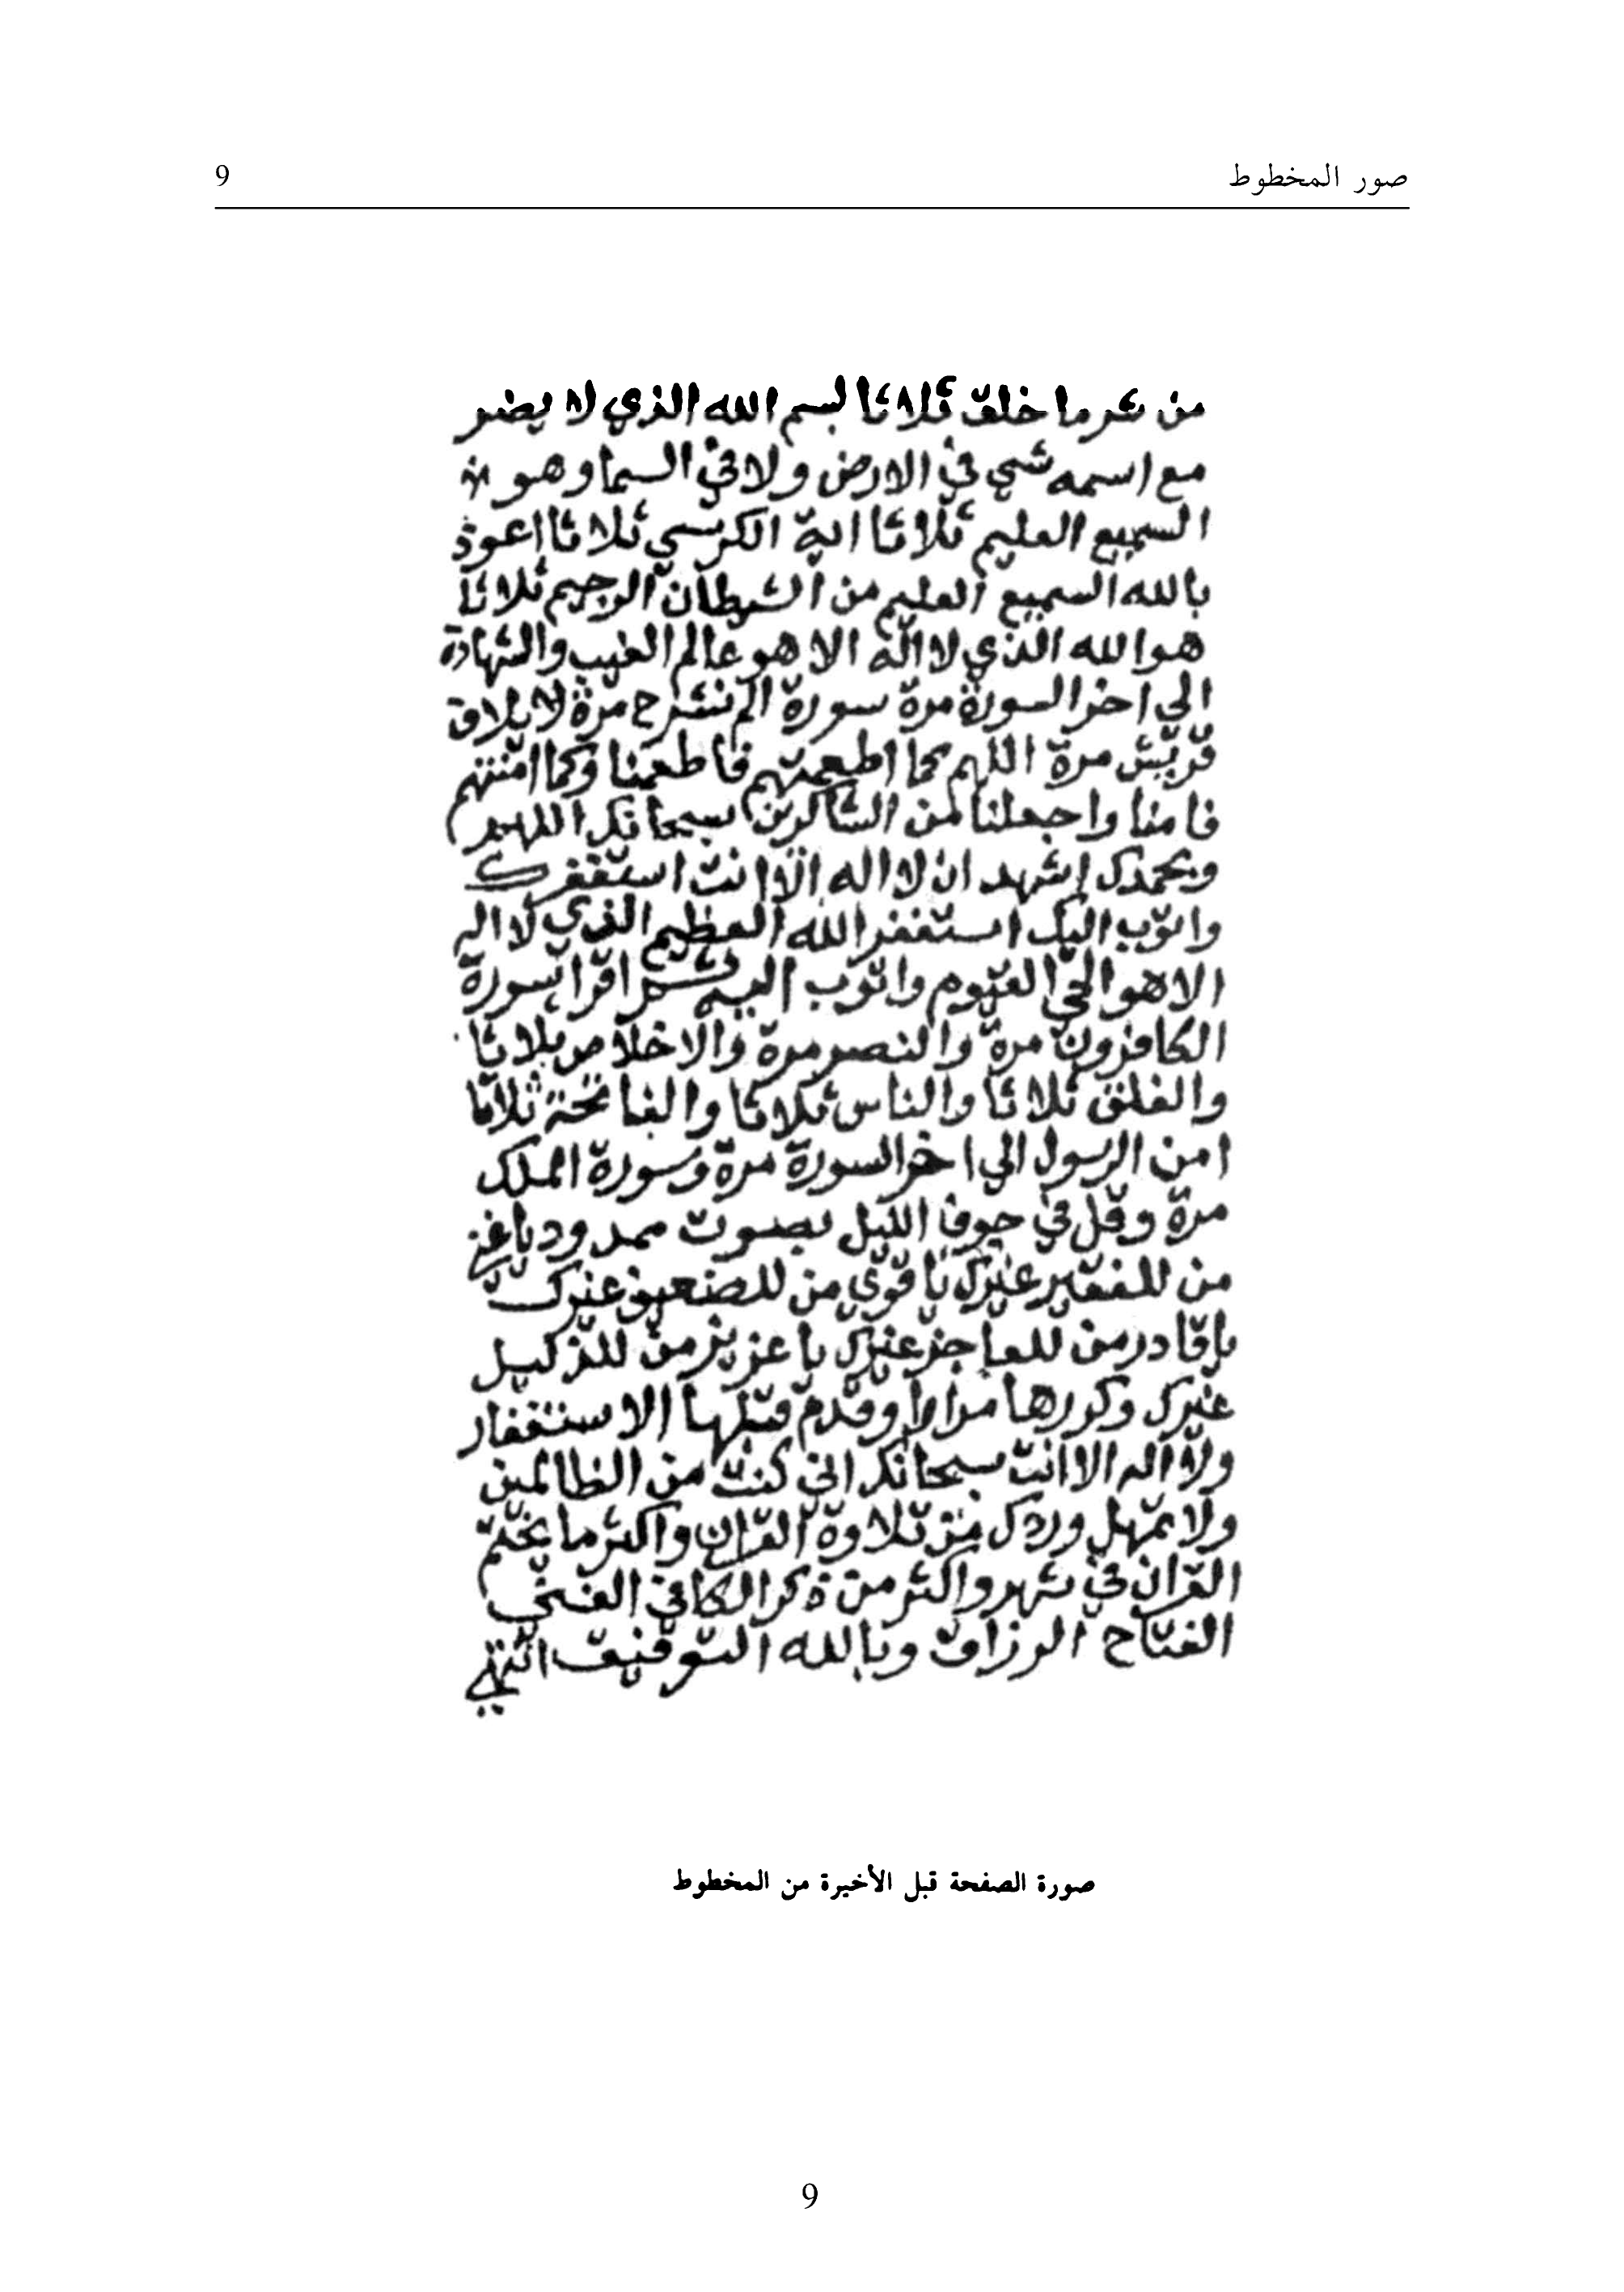 صور المخطوط 9
من شر ما خلق ثلاثا بسم الله الذي لا يضر
مع اسمه شي في الارض ولا في السما وهو
السميع العليم ثلاثا اية الكرسي ثلاثا اعوذ
بالله السميع العليم من الشيطان الرجيم ثلاثا
هو الله الذي لا اله الا هو عالم الغيب والشهادة
الى اخر السورة مرة سورة الم نشرح مرة لايلاف
قريش مرة اللهم كما اطعمتهم فاطعمنا وكما امنتهم
فامنا واجعلنا من الشاكرين سبحانك اللهم
وبحمدك اشهد ان لا اله الا انت استغفرك
واتوب اليك استغفر الله العظيم الذي لا اله
الا هو الحي القيوم واتوب اليه اقرا سورة
الكافرون مرة والنصر مرة والاخلاص ثلاثا
والفلق ثلاثا والناس ثلاثا والفاتحة ثلاثا
امن الرسول الي اخر السورة مرة وسورة الملك
مرة وقل في جوف الليل بصوت ممدود ياغني
من للفقير غيرك يا قوي من للضعيف غيرك
يا قادر من للعاجز غيرك يا عزيز من للذليل
غيرك وكررها مرارا وقدم قبلها الاستغفار
ولا اله الا انت سبحانك اني كنت من الظالمين
ولا تمهل وردك من تلاوة القران واكثر ما يختم
القران في شهر واكثر من ذكر الكافي الغني
الفتاح الرزاق وبالله التوفيق انتهي
صورة الصفحة قبل الأخيرة من المخطوط
9